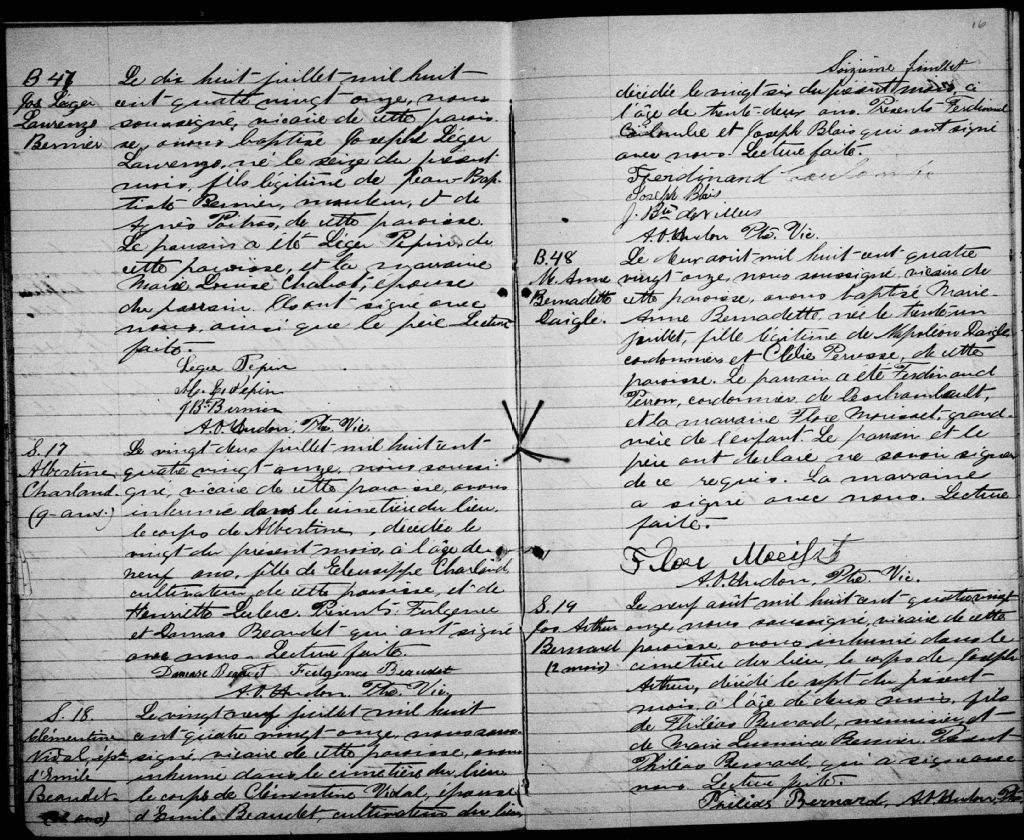 B 47
Jos Léger
Laurenzo
Bernier
Le dix huit juillet mil huit
cent quatre vingt onze, nous
soussigné, vicaire de cette parois
se, avons baptisé Joseph Léger
Laurenzo, né le seize du présent
mois, fils légitime de Jean-Bap
tiste Bernier, meuteur, et de
Agnès Poitras, de cette paroisse.
Le parrain a été Léger Pepin, de
cette paroisse, et la marraine
Marie Louise Chabot, épouse
du parrain. Ils ont signé avec
nous, ainsi que le père. Lecture
faite.
Leger Pepin
J Bte Bernier
A. O. Hudon, Ptre Vic.
S. 17
Albertine
Charland.
(9 ans.)
Le vingt deux juillet mil huit cent
quatre vingt onze, nous soussi
gné, vicaire de cette paroisse, avons
inhumé dans le cimetière du lieu
le corps de Albertine, décédée le
vingt du présent mois, à l'âge de
neuf ans, fille de Eleusippe Charland
cultivateur de cette paroisse, et de
Henriette Leclerc. Présents Fulgence
et Damas Beaudet qui ont signé
avec nous. Lecture faite.
Damase Beaudet Fulgence Beaudet
A. O. Hudon Ptre Vic.
S. 18
Clémentine
Vidal, épse
d'Emile
Beaudet
Le vingt neuf juillet mil huit
cent quatre vingt onze, nous sous
signé, vicaire de cette paroisse, avons
inhumé dans le cimetière du lieu
le corps de Clémentine Vidal, épouse
d'Emile Beaudet, cultivateur du lieu
16
Seizième feuillet
décédée le vingt six du présent mois, à
l'âge de trente-deux ans. Présents Ferdinand
Coulombe et Joseph Blais qui ont signé
avec nous. Lecture faite.
Ferdinand Coulombe
Joseph Blais
J. Bte de Villers
A. O. Hudon Ptre Vic.
B. 48
M. Anne
Bernadette
Daigle.
Le deux août mil huit cent quatre
vingt onze, nous soussigné, vicaire de
cette paroisse, avons baptisé Marie-
Anne Bernadette, née le trente un
juillet, fille légitime de Napoléon Daigle
cordonnier et Clélie Perusse, de cette
paroisse. Le parrain a été Ferdinand
Perron, cordonnier de Deschambault,
et la marraine Flore Morisset, grand-
mère de l'enfant. Le parrain et le
père ont déclaré ne savoir signer
de ce requis. La marraine
a signé avec nous. Lecture
faite.
Flore
A. O. Hudon, Ptre Vic.
S. 19
Jos Arthur
Bernard
(2 mois)
Le neuf août mil huit cent quatre vingt
onze, nous soussigné, vicaire de cette
paroisse, avons inhumé dans le
cimetière du lieu, le corps de Joseph
Arthur, décédé le sept du présent
mois, à l'âge de deux mois, fils
de Philéas Bernard, menuisier, et
de Marie Lumina Bernier. Présent
Philéas Bernard, qui a signé avec
nous. Lecture faite.
Philias Bernard, A. O. Hudon, Ptre